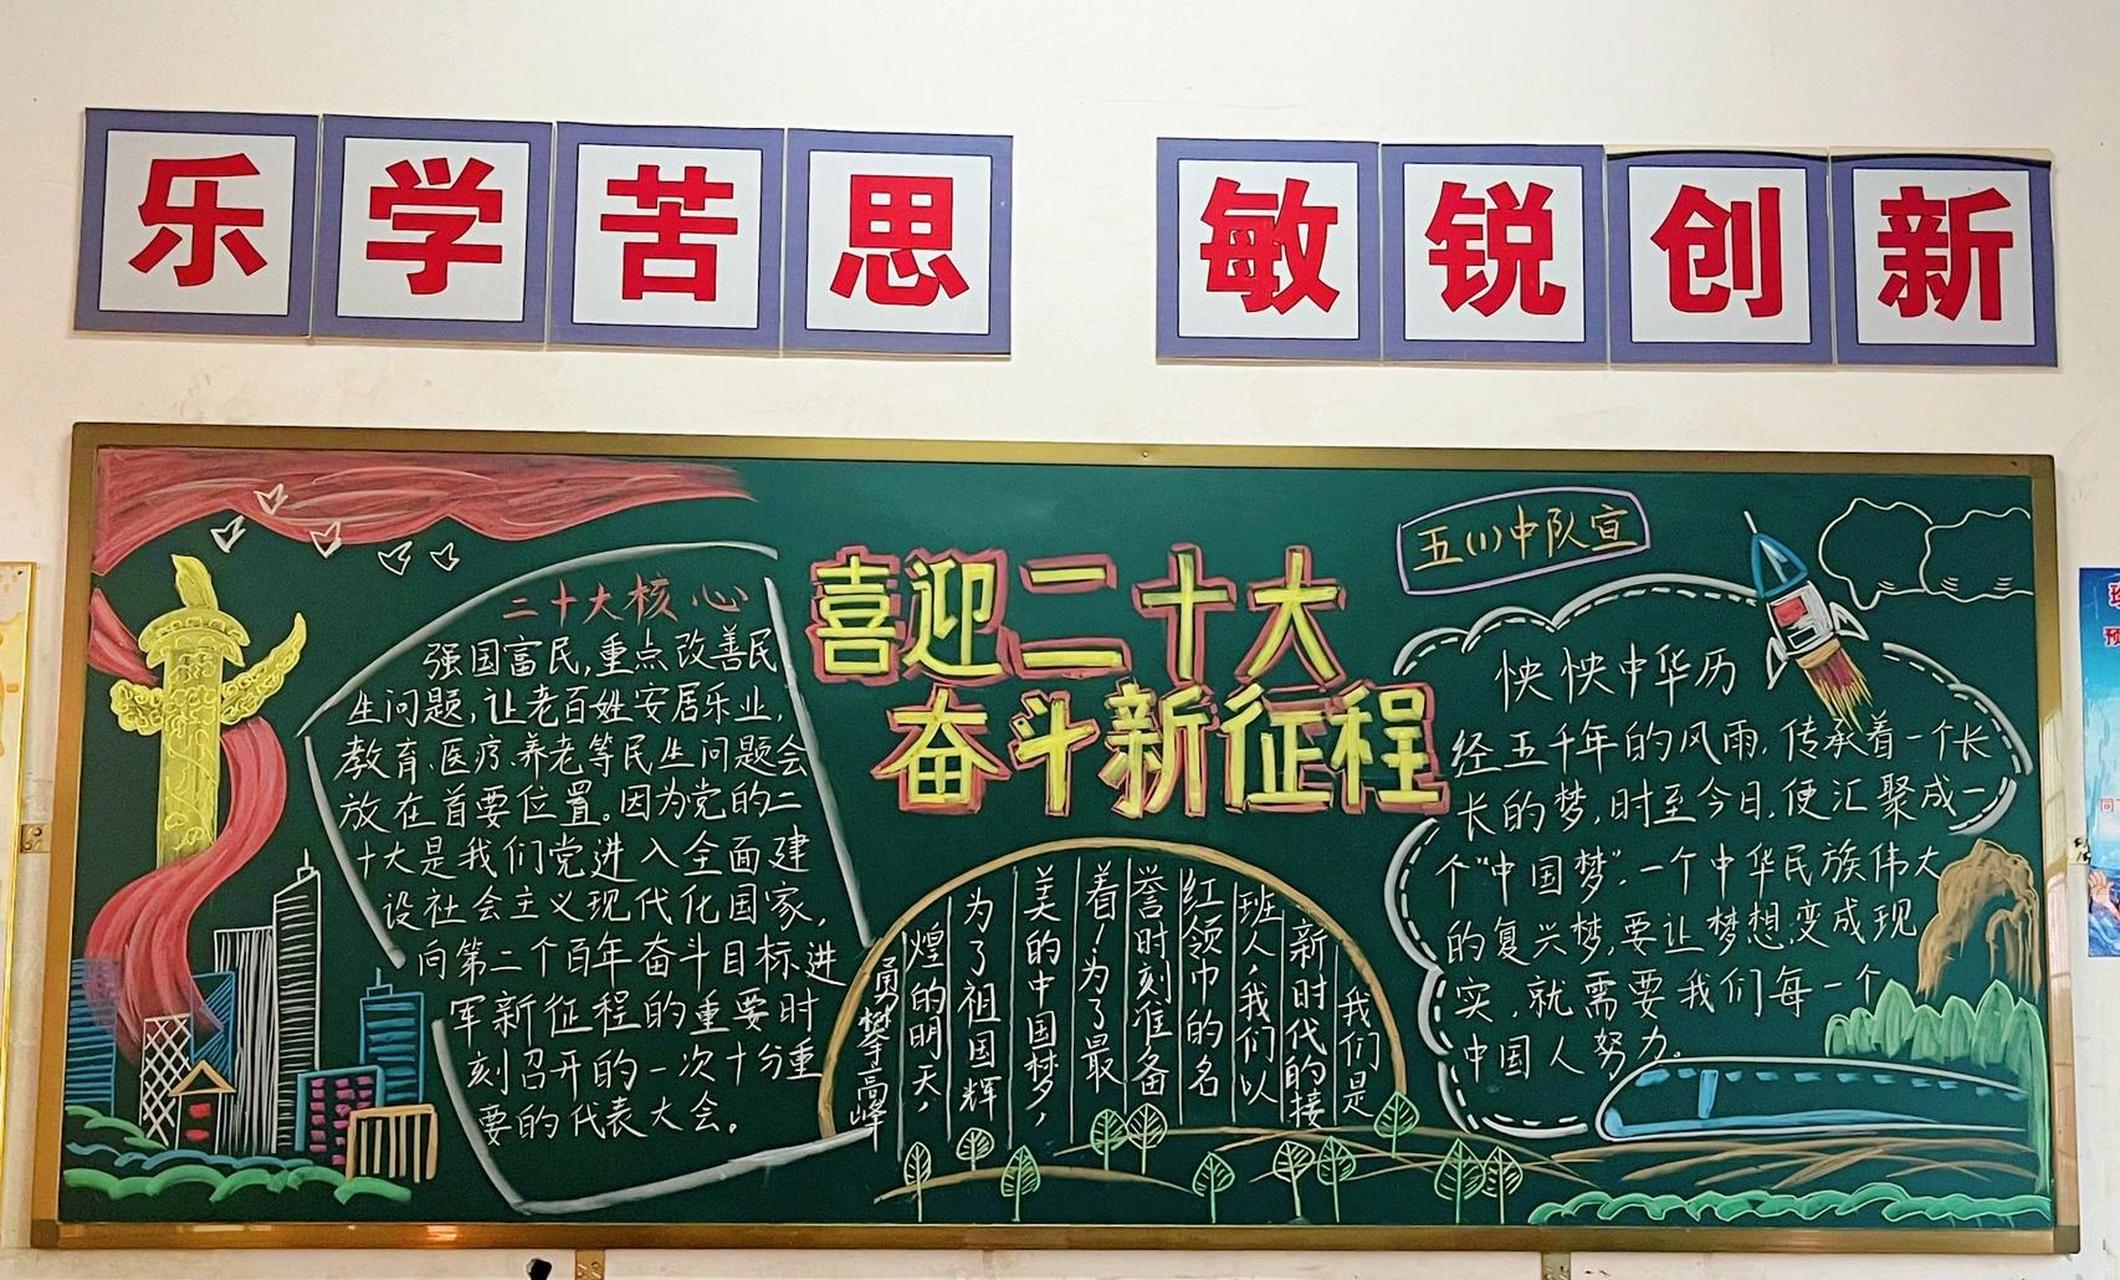 乐学苦思 敏锐创新
喜迎二十大
奋斗新征程
五(1)中队宣
二十大核心
强国富民,重点改善民
生问题,让老百姓安居乐业,
教育、医疗、养老等民生问题会
放在首要位置。因为党的二
十大是我们党进入全面建
设社会主义现代化国家,
向第二个百年奋斗目标进
军新征程的重要时
刻召开的一次十分重
要的代表大会。
我们是
新时代的接
班人,我们以
红领巾的名
誉时刻准备
着!为了最
美的中国梦,
为了祖国辉
煌的明天,
勇攀高峰
怏怏中华历
经五千年的风雨,传承着一个长
长的梦,时至今日,便汇聚成一
个“中国梦”.一个中华民族伟大
的复兴梦,要让梦想变成现
实,就需要我们每一个
中国人努力。